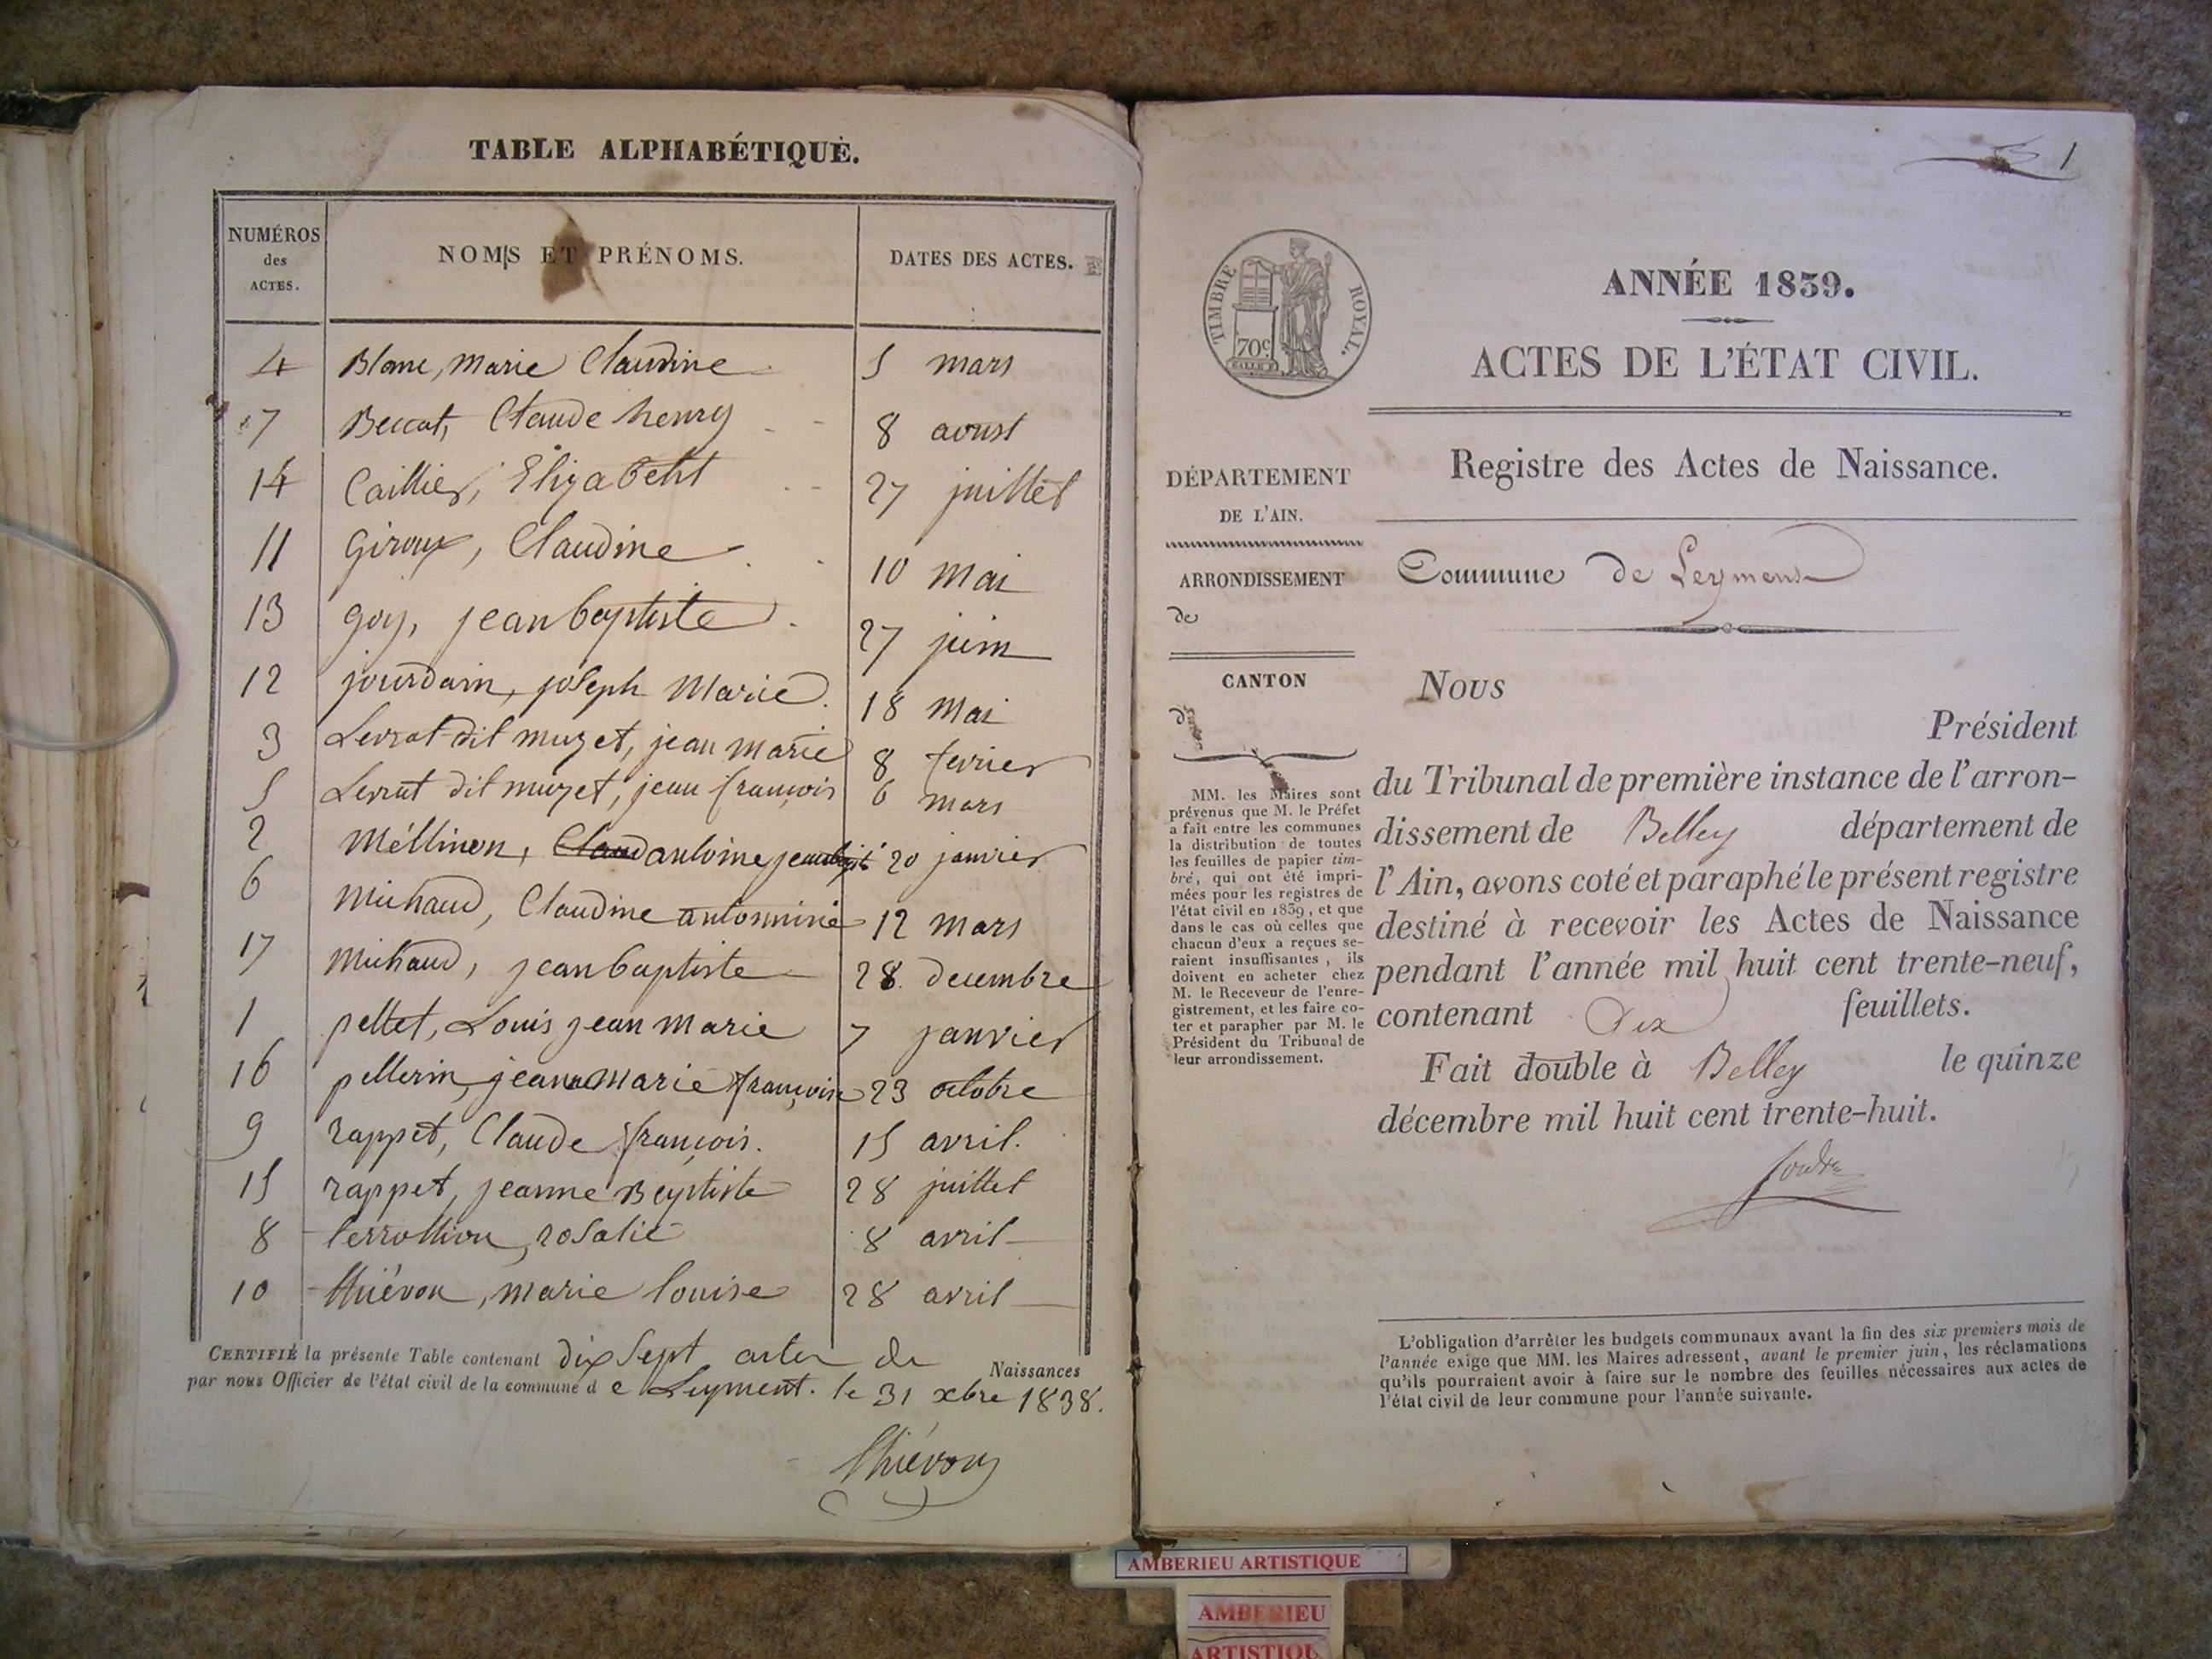 TABLE ALPHABÉTIQUE.
NUMÉROS des ACTES. NOMS ET PRÉNOMS. DATES DES ACTES.
4 Blanc, Marie Claudine 5 mars
7 Beccat, Claude henry 8 avril
14 Caillier, Elizabeth 27 juillet
11 Giroux, Claudine 10 mai
13 goy, jean baptiste 27 juin
12 jourdain, joseph Marie 18 mai
3 Levrat dit muzet, jean marie 8 fevrier
5 Levrat dit muzet, jean françois 6 mars
2 Méllinon, antoine 20 janvier
6 Michaud, Claudine antonnine 12 mars
17 Michaud, jean baptiste 28 decembre
1 pellet, Louis jean marie 7 janvier
16 pellerin, jeanne Marie françoise 23 octobre
9 rappet, Claude françois. 15 avril.
15 rappet, jeanne Baptiste 28 juillet
8 terrollion, rosalie 8 avril
10 thiévon, marie louise 28 avril
CERTIFIÉ la présente Table contenant dix sept actes de Naissances
par nous Officier de l'état civil de la commune de Leyment. le 31 xbre 1838.
Thiévon
1
TIMBRE ROYAL.
70c
ANNÉE 1839.
ACTES DE L'ÉTAT CIVIL.
Registre des Actes de Naissance.
DÉPARTEMENT
DE L'AIN.
ARRONDISSEMENT
de
CANTON
d
MM. les Maires sont
prévenus que M. le Préfet
a fait entre les communes
la distribution de toutes
les feuilles de papier tim-
bré, qui ont été impri-
mées pour les registres de
l'état civil en 1839, et que
dans le cas où celles que
chacun d'eux a reçues se-
raient insuffisantes, ils
doivent en acheter chez
M. le Receveur de l'enre-
gistrement, et les faire co-
ter et parapher par M. le
Président du Tribunal de
leur arrondissement.
Commune de Leyment
NOUS
Président
du Tribunal de première instance de l'arron-
dissement de Belley département de
l'Ain, avons coté et paraphé le présent registre
destiné à recevoir les Actes de Naissance
pendant l'année mil huit cent trente-neuf,
contenant Dix feuillets.
Fait double à Belley le quinze
décembre mil huit cent trente-huit.
L'obligation d'arrêter les budgets communaux avant la fin des six premiers mois de
l'année exige que MM. les Maires adressent, avant le premier juin, les réclamations
qu'ils pourraient avoir à faire sur le nombre des feuilles nécessaires aux actes de
l'état civil de leur commune pour l'année suivante.
AMBERIEU ARTISTIQUE
AMBERIEU
ARTISTIQU